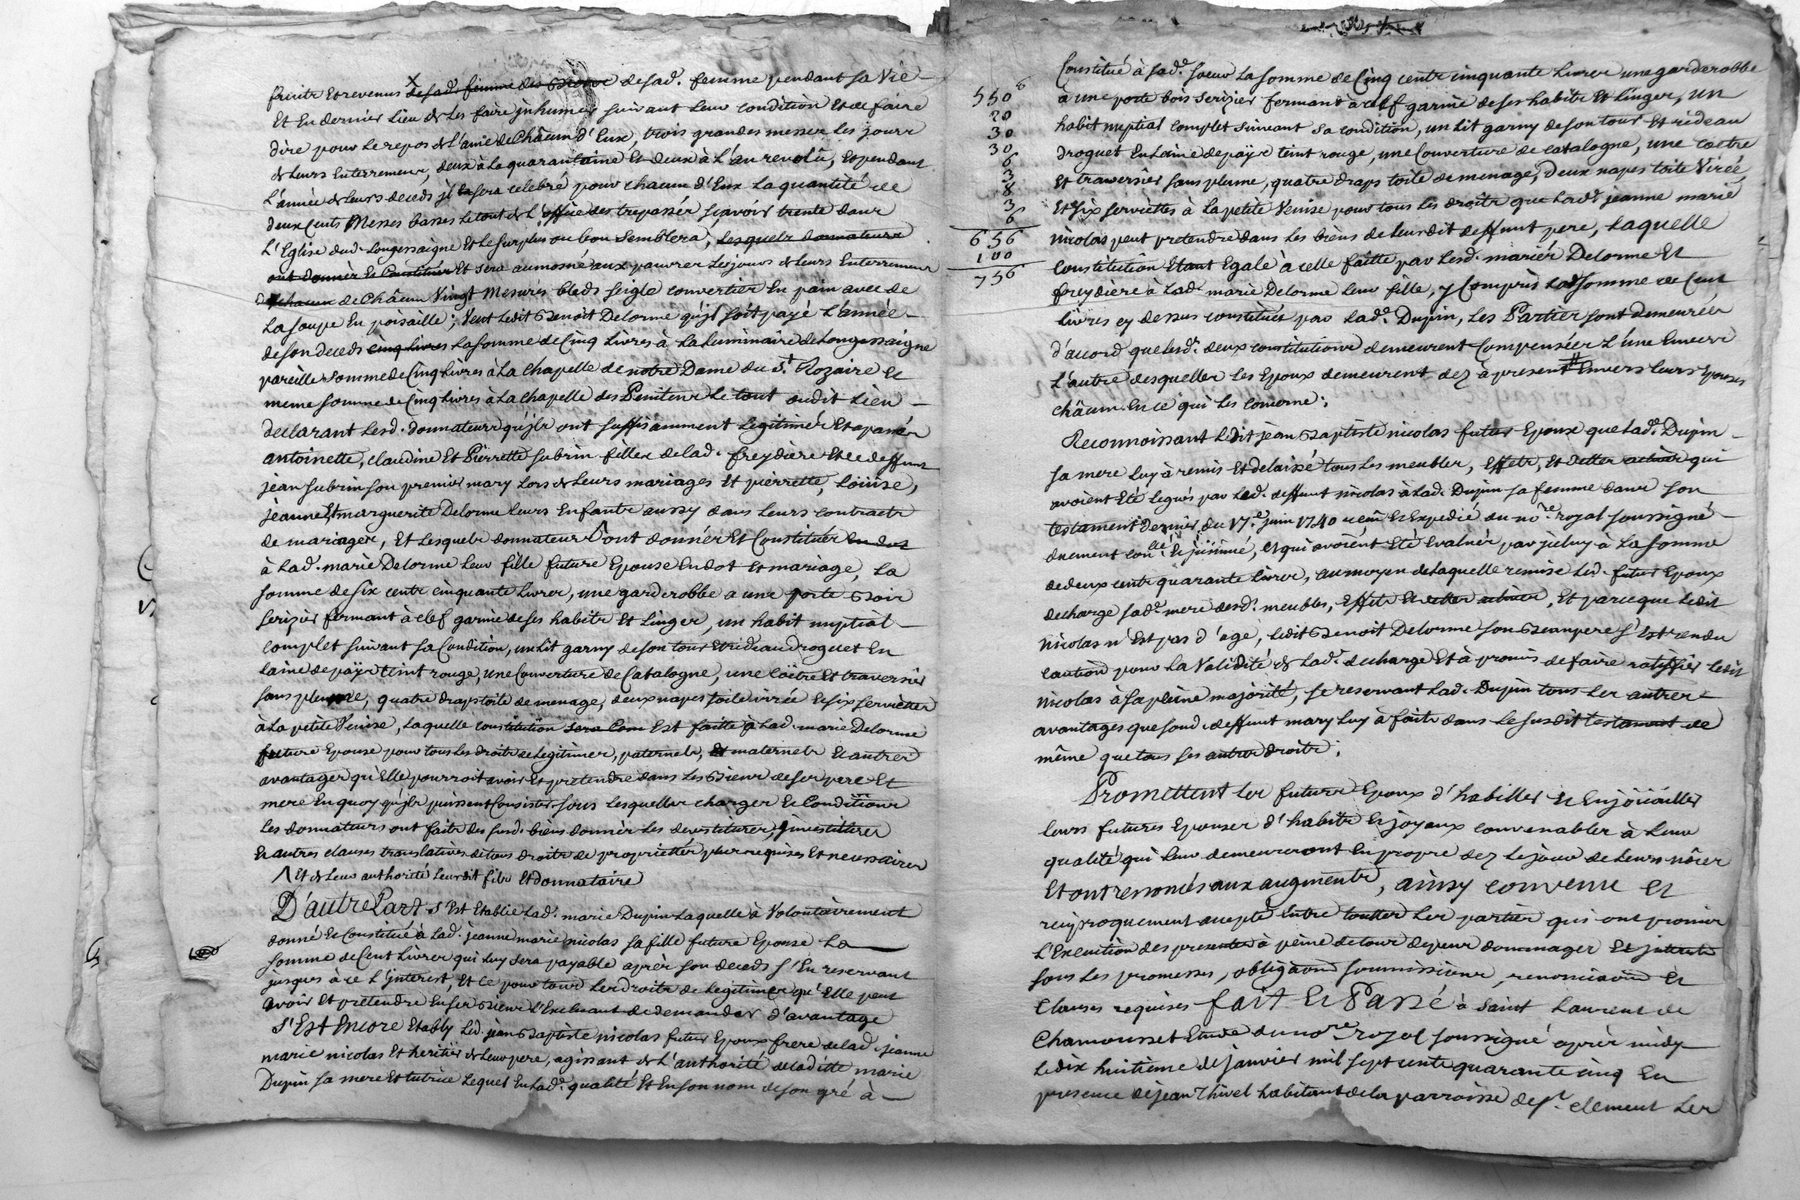 fruits et revenus de sad. femme des Biens de sad. femme pendant sa vie
Et En dernier Lieu de Les faire jnhumer suivant leur condition et de faire
dire pour le repos de l'ame de Châcun d'Eux, trois grandes messes les jours
de leurs Enterrements, deux à la quarantaine Et deux à L'an revolû, Et pendant
L'année de leurs deceds jl sera celebré pour chacun d'Eux La quantité de
deux Cents Messes basses le tout de l'office des trepassés sçavoir trente dans
L'Eglise dud. Longessaigne Et le surplus ou bon semblera, lesquels donnateurs
ont donnés et Constitués Et sera aumosné aux pauvres les jours de leurs Enterrements
de Châcun Vingt Mesures bleds seigle converties En pain avec de
La soupe En poisaille; Veut ledit Benoit Delorme qu'jl soit payé L'année
de son deceds cinq livres La somme de Cinq Livres à La Luminaire de Longessaigne
pareille somme de Cinq Livres à La Chapelle de notre Dame du St. Rozaire Et
meme somme de Cinq Livres à La Chapelle des Penitens Le tout audit Lieu
declarant Lesd. donnateurs qu'jls ont suffisamment Legitimés Et apanés
antoinette, claudine Et Pierrette subrin filles de lad. freydiere Et de deffunt
jean subrin son premier mary Lors de Leurs mariages Et pierrette, Loüise,
jeanne Et marguerite Delorme leurs Enfants aussy dans Leurs contracts
de mariages, Et Lesquels donnateurs ont donnés Et Constitués En dot
à Lad. marie Delorme leur fille future Epouse En dot Et mariage, La
somme de six cents cinquante Livres, une garderobbe a une porte Bois
serisier fermant à clef garnie de ses habits Et Linges, un habit nuptial
complet suivant sa Condition, un Lit garny de son tour Et rideau Droguet En
Laine de païs teint rouge, une Couverture de Catalogne, une Coëtre Et traversier
sans plume, quatre draps toile de menage, deux napes toile virée Et six serviettes
à La petite Venise, Laquelle constitution sera Com Est faite à Lad. marie Delorme
future Epouse pour tous les droits de Legitimes, paternels, Et maternels Et autres
avantages qu'Elle pourroit avoir Et pretendre dans Les Biens de ses pere Et
mere En quoy qu'jls puissent Consister sous Lesquelles charges Et Conditions
Les donnateurs ont faits des susd. biens donnés Les devestitures, jnvestitures
Et autres clauses translatives de tous droits de proprietté plus requises Et necessaires
Et de Leur authorité Leurdit fils Et donnataire
D'autre Part s'Est Etablie Lad. marie Dupin Laquelle à Volontairement
donné Et Constitué à Lad. jeanne marie nicolas sa fille future Epouse La
somme de Cent Livres qui luy sera payable après son deceds s'En reservant
jusques à ce L'jnterest, Et Ce pour tous Les droits de Legitimes qu'Elle peut
avoir Et pretendre En ses Biens L'Excluant de demander d'avantage
S'Est Encore Etably Led. jean Baptiste nicolas futur Epoux frere de lad. jeanne
marie nicolas Et heritier de Leur pere, agissant de L'authorité de laditte marie
Dupin sa mere Et tutrice Lequel En lad. qualité Et En son nom de son gré à
Constitué à sad. soeur La somme de Cinq cents cinquante Livres une garderobbe
à une porte bois serisier fermant à clef garnie de ses habits Et Linges, un
habit nuptial complet suivant sa condition, un Lit garny de son tour Et rideau
droguet En Laine de païs teint rouge, une Couverture de catalogne, une coetre
Et traversier sans plume, quatre draps toile de menage, Deux napes toile Virée
Et six serviettes à La petite Venise pour tous Les droits que Lad. jeanne marie
nicolas peut pretendre dans Les biens de Leurdit deffunt pere, Laquelle
constitution Etant Egale à celle faitte par Lesd. mariés Delorme Et
freydiere à Lad. marie Delorme leur fille, y Compris Lad. somme de Cent
Livres cy dessus constituée par Lad. Dupin, Les Parties sont demeurées
d'accord que Lesd. deux constitutions demeurent Compensées L'une Envers
L'autre desquelles les Epoux demeurent dez à present Envers leurs Epouses
châcun En ce qui Les Concerne;
Reconnoissant Ledit jean Baptiste nicolas futur Epoux que Lad. Dupin
sa mere Luy à remis Et delaissé tous Les meubles, Effets, Et dettes actives qui
avoient Eté Legués par Led. deffunt nicolas à Lad. Dupin sa femme dans son
testament dernier du 17e. juin 1740 receu Et Expedié du nore. royal soussigné
duement conllé Et jnsinué, et qui avoient Eté Evalués par jceluy à La somme
de deux cents quarante Livres, au moyen de Laquelle remise Led. futur Epoux
decharge sad. mere desd. meubles, Effets Et dettes actives, Et parceque Ledit
Nicolas n'Est pas d'age, Ledit Benoit Delorme son Beaupere s'Est rendu
caution pour La Validité de Lad. decharge Et à promis de faire ratiffier Ledit
nicolas à sa pleine majorité, se reservant Lad. Dupin tous Les autres
avantages que soud. deffunt mary Luy à faits dans Le susdit testament de
même que tous ses autres droits;
Promettent les futurs Epoux d'habiller Et Enjoüailler
leurs futures Epouses d'habits Et joyaux convenables à leur
qualité qui leur demeureront En propre dez Le jour de Leurs nôces
Et ont renoncés aux augments, ainsy convenu Et
reciproquement accepté Entre touttes Les parties qui ont promis
L'Execution des presentes à peine de tous depens dommages Et jnterets
sous Les promesses, obligaons soumissions, renonciaons Et
Clauses requises fait Et Passé à saint Laurent de
Chamousset Etude du nore royal soussigné après midy
Le dix huitieme de janvier mil sept cents quarante cinq En
presence de jean Thivel habitant de la parroisse de St. clement Les
550
20
30
30
6
3
8
3
6
656
100
756